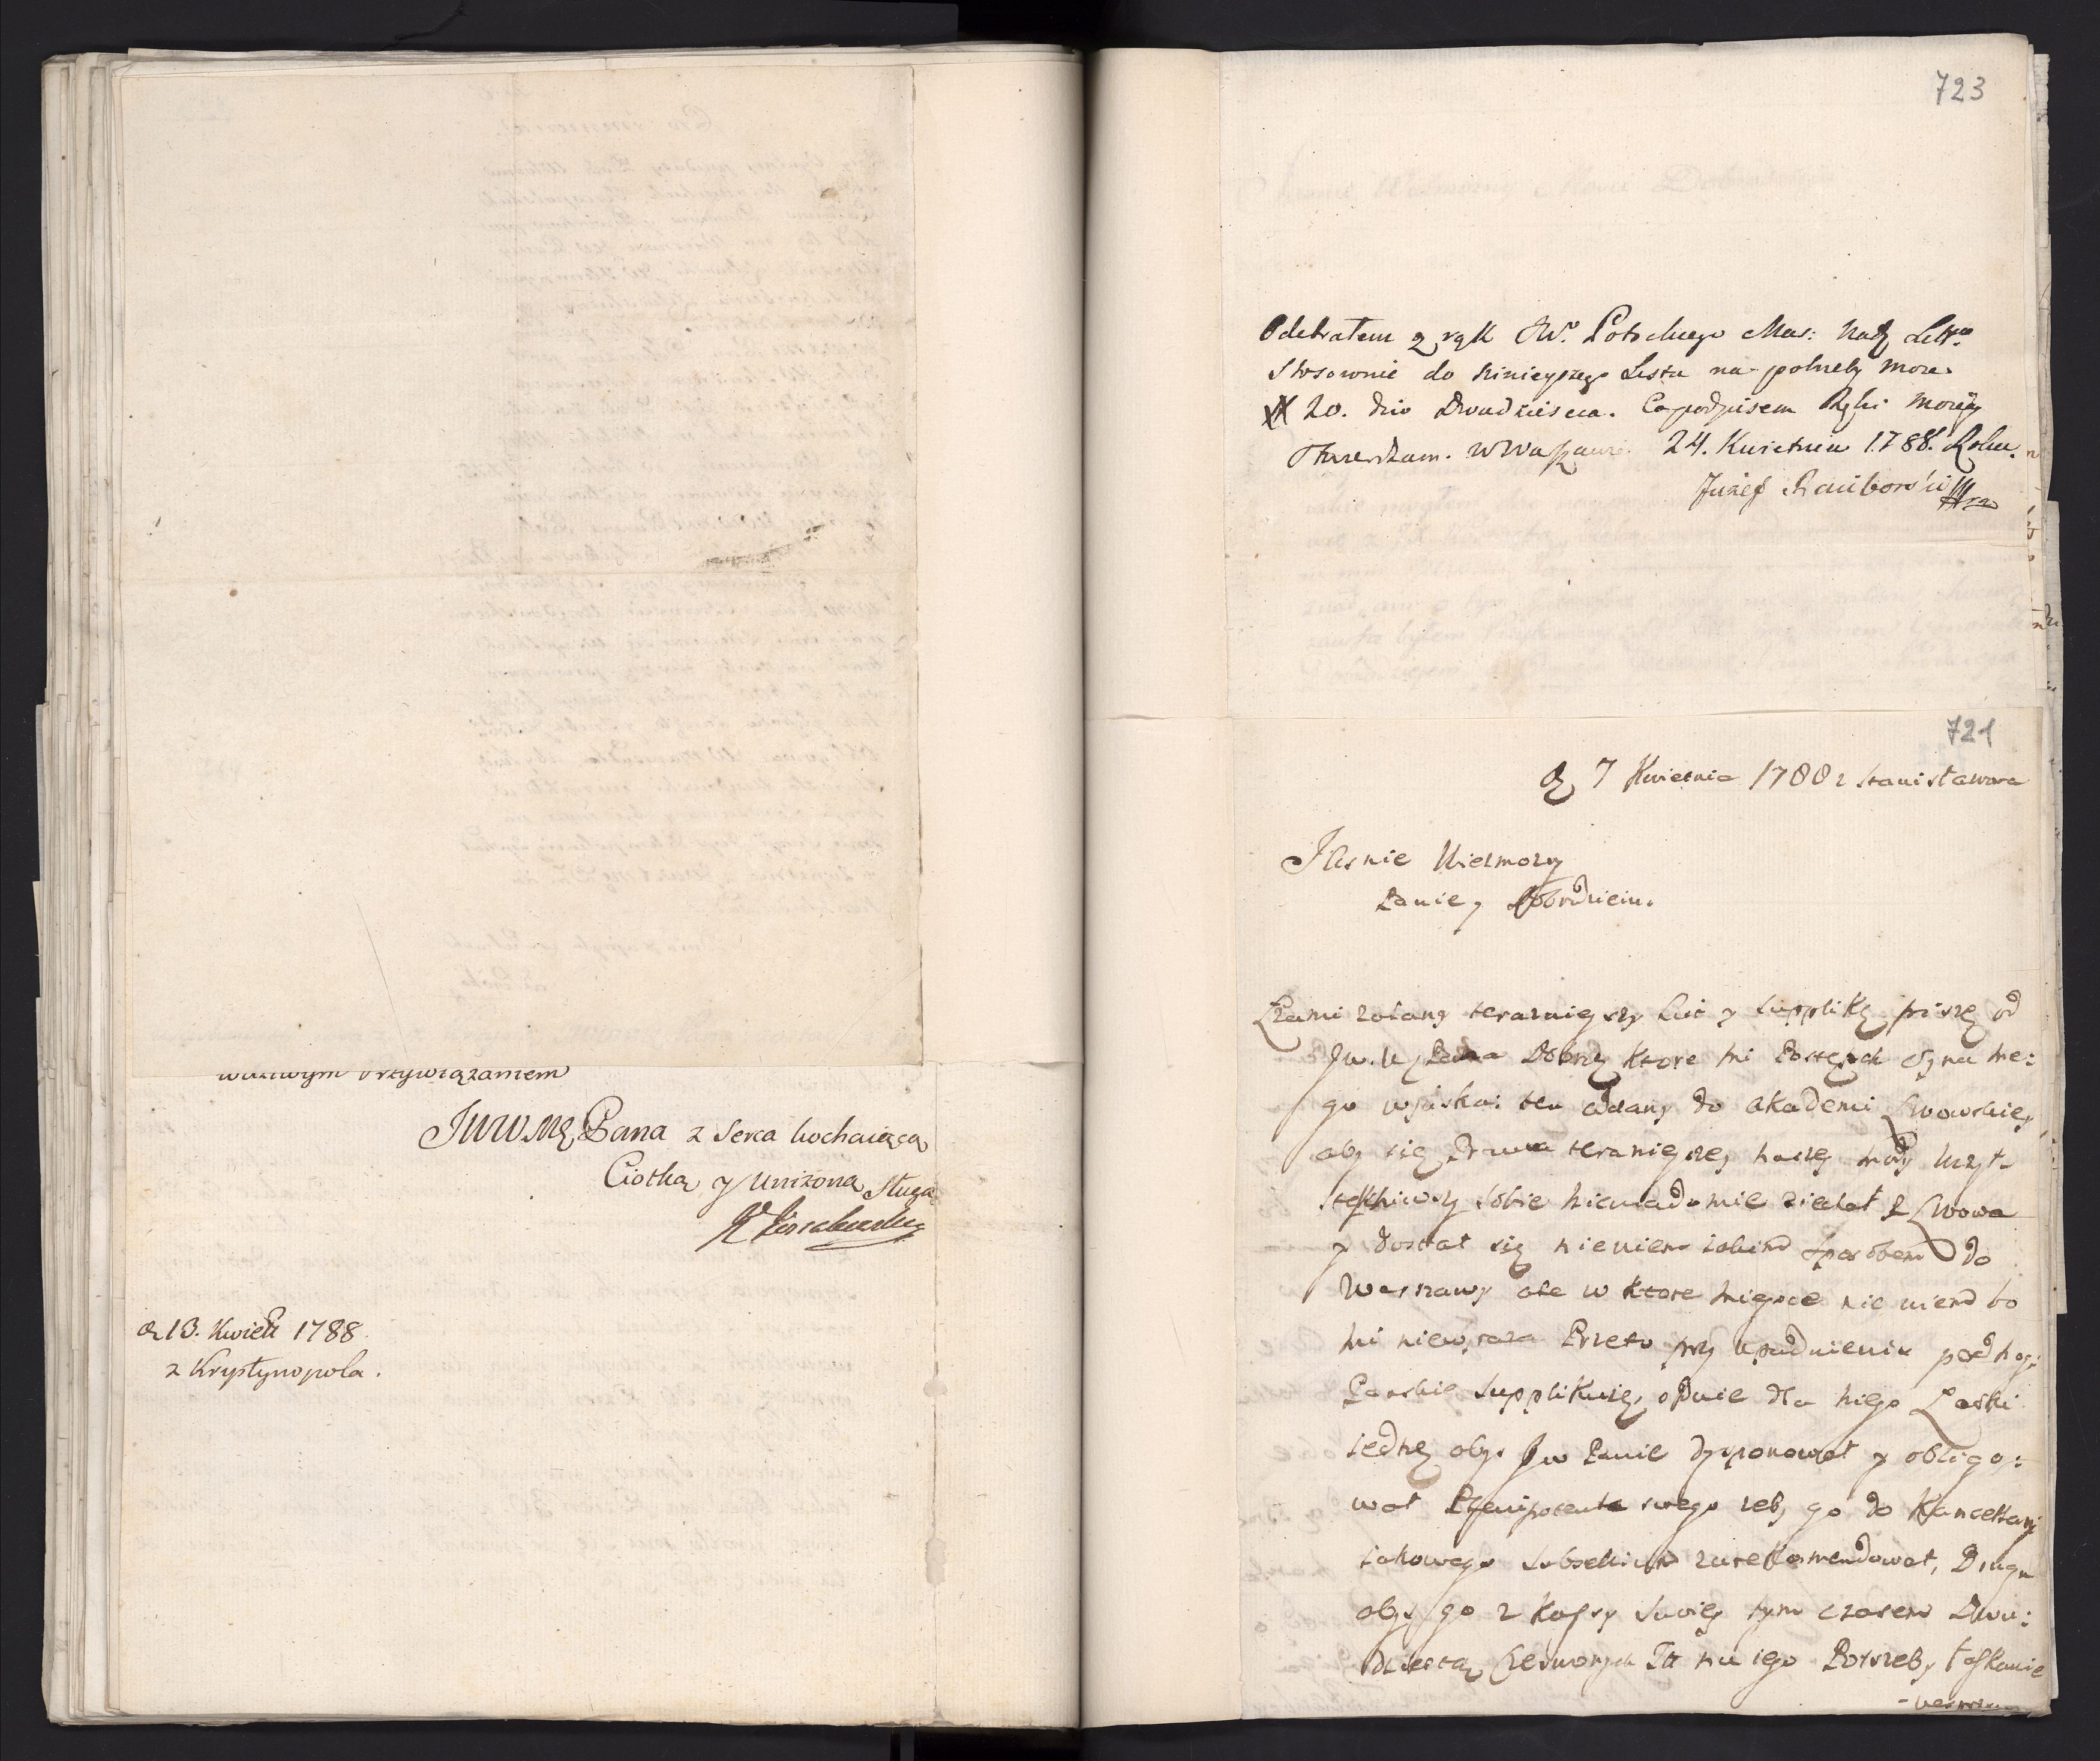 ważliwym Przywiązaniem
JWWMę Pana z Serca kochaiąca
Ciotka y uniżona Sługa
d 13. Kwiet 1788.
z Krystynopola.
723
Odebrałem z rąk JW. Potockiego Mar: Nad. Litt.
Stosownie do ninieyszego Listu na potrzeby moie
# 20. dio Dwadziescia. Co podpisem Ręki moiey
Stwierdzam. w Warszawie 24. Kwietnia 1788. Roku.
Juzef Raciborski mp
721
d 7 Kwietnia 1788 z Stanisławowa
Jasnie Wielmozy
Panie y Dobrodzieiu.
Łzami zolany teraznieyszy List y Supplikę piszę od
Jw. W Pana Dobrdz. ktore mi Postępek Syna me:
go wyiska: ten oddany do Akademi Lwowskiey
aby się Prawa teranieyszey naszey mody uczył
steskniwszy sobie niewiadomie ziechał z Lwowa
y dostał się niewiem iakim sposobem do
Warszawy ale w ktore mieysce nie wiem bo
mi niewyraza Przeto przy upadnieniu pod nogi
Panskie Supplikuię, o dwie dla niego Łaski
iednę abys Jw Panie dysponował y obligo:
wał Plenipotenta swego zeby go do Kancellaryi
iakowego Subsellium zarekomendował, Drugą
abys go z Kassy Swoiey tym czasem Dwu:
dziestą Czerwonych Zł na iego Potrzeby łaskawie